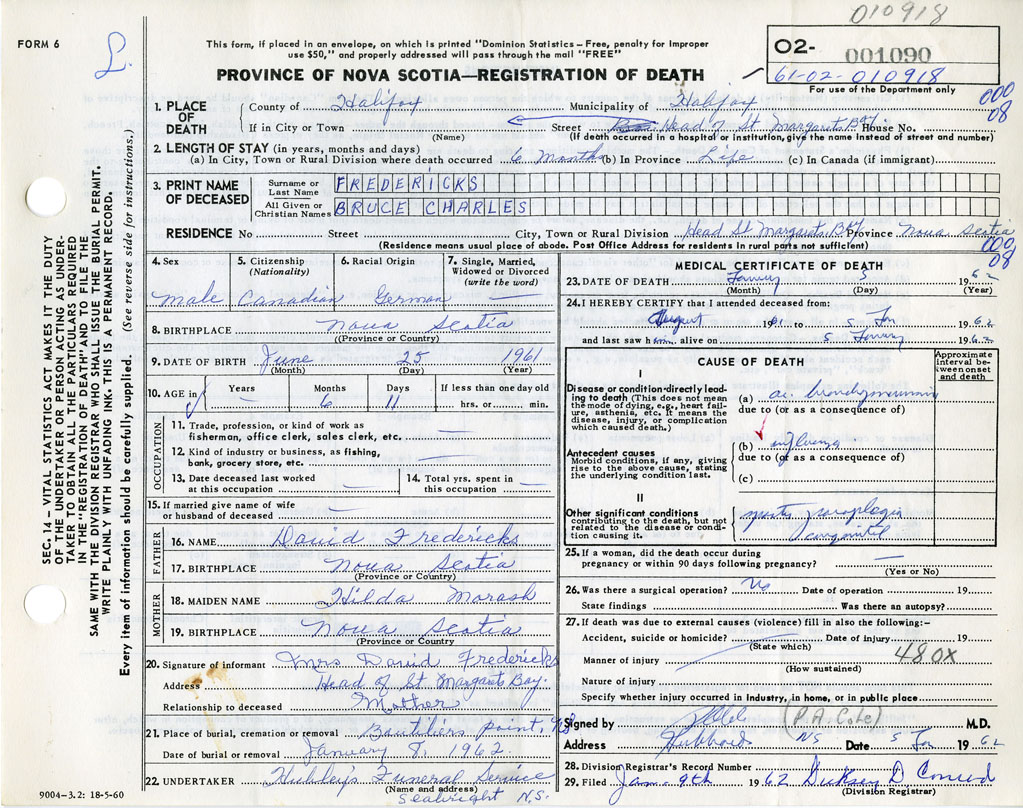 010918
FORM 6
L.
This form, if placed in an envelope, on which is printed "Dominion Statistics – Free, penalty for improper
use $50," and properly addressed will pass through the mail "FREE"
PROVINCE OF NOVA SCOTIA—REGISTRATION OF DEATH
02- 001090
61-02-010918
For use of the Department only
000
08
SEC. 14 – VITAL STATISTICS ACT MAKES IT THE DUTY
OF THE UNDERTAKER OR PERSON ACTING AS UNDER-
TAKER TO OBTAIN ALL THE PARTICULARS REQUIRED
IN THE "REGISTRATION OF DEATH" AND TO FILE THE
SAME WITH THE DIVISION REGISTRAR WHO SHALL ISSUE THE BURIAL PERMIT.
WRITE PLAINLY WITH UNFADING INK. THIS IS A PERMANENT RECORD.
Every item of information should be carefully supplied. (See reverse side for instructions.)
1. PLACE OF DEATH
County of Halifax Municipality of Halifax
If in City or Town Street Head of St Margarets Bay House No.
(Name) (If death occurred in a hospital or institution, give the name instead of street and number)
2. LENGTH OF STAY (in years, months and days)
(a) In City, Town or Rural Division where death occurred 6 Months (b) In Province Life (c) In Canada (if immigrant)
3. PRINT NAME OF DECEASED
Surname or Last Name FREDERICKS
All Given or Christian Names BRUCE CHARLES
RESIDENCE No Street City, Town or Rural Division Head St Margarets Bay Province Nova Scotia
(Residence means usual place of abode. Post Office Address for residents in rural parts not sufficient)
000
08
4. Sex
Male
5. Citizenship (Nationality)
Canadian
6. Racial Origin
German
7. Single, Married, Widowed or Divorced (write the word)
—
8. BIRTHPLACE Nova Scotia
(Province or Country)
9. DATE OF BIRTH June 25 1961
(Month) (Day) (Year)
10. AGE in
Years —
Months 6
Days 11
If less than one day old
hrs. or min.
OCCUPATION
11. Trade, profession, or kind of work as
fisherman, office clerk, sales clerk, etc. —
12. Kind of industry or business, as fishing,
bank, grocery store, etc. —
13. Date deceased last worked
at this occupation —
14. Total yrs. spent in
this occupation —
15. If married give name of wife
or husband of deceased —
FATHER
16. NAME David Fredericks
17. BIRTHPLACE Nova Scotia
(Province or Country)
MOTHER
18. MAIDEN NAME Hilda Marash
19. BIRTHPLACE Nova Scotia
(Province or Country)
20. Signature of informant Mrs David Fredericks
Address Head of St Margarets Bay.
Relationship to deceased Mother
21. Place of burial, cremation or removal Boutiliers Point, NS
Date of burial or removal January 8, 1962.
22. UNDERTAKER Hubley's Funeral Service
(Name and address)
Sealright N.S.
9004–3.2: 18-5-60
MEDICAL CERTIFICATE OF DEATH
23. DATE OF DEATH 5 1962
(Month) (Day) (Year)
24. I HEREBY CERTIFY that I attended deceased from:
August 1961 to 5 Jan 1962
and last saw him, alive on 5 1962
CAUSE OF DEATH
Approximate interval between onset and death
I
Disease or condition directly lead-
ing to death (This does not mean
the mode of dying, e.g., heart fail-
ure, asthenia, etc. It means the
disease, injury, or complication
which caused death.)
(a) ac.
due to (or as a consequence of)
Antecedent causes
Morbid conditions, if any, giving
rise to the above cause, stating
the underlying condition last.
(b) influenza
due to (or as a consequence of)
(c)
II
Other significant conditions
contributing to the death, but not
related to the disease or condi-
tion causing it.
paraplegia
congenital
25. If a woman, did the death occur during
pregnancy or within 90 days following pregnancy? —
(Yes or No)
26. Was there a surgical operation? No Date of operation 19
State findings Was there an autopsy?
27. If death was due to external causes (violence) fill in also the following:–
Accident, suicide or homicide? Date of injury 19
(State which)
Manner of injury 480X
(How sustained)
Nature of injury
Specify whether injury occurred in industry, in home, or in public place
Signed by (P.A. Cole) M.D.
Address Hubbards NS Date 5 Jan 1962
28. Division Registrar's Record Number
29. Filed Jan. 9th 1962 D. Conrad
(Division Registrar)